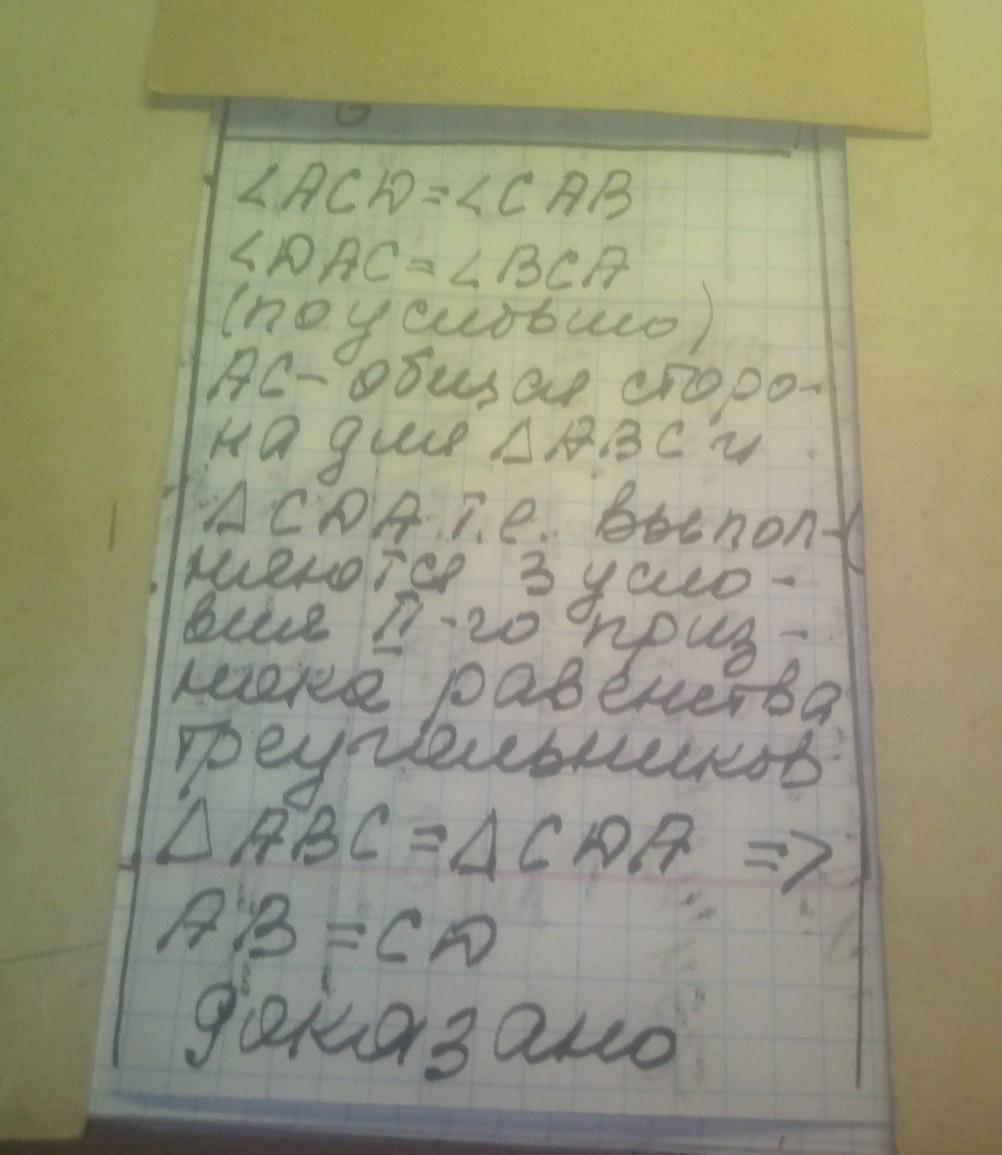 ∠ACD=∠CAB
∠DAC=∠BCA
(по условию)
AC- общая сторо-
на для △ABC и
△CDA т.е. выпол-
няются 3 усло-
вия II-го приз-
нака равенства
треугольников
△ABC=△CDA =>
AB=CD
доказано